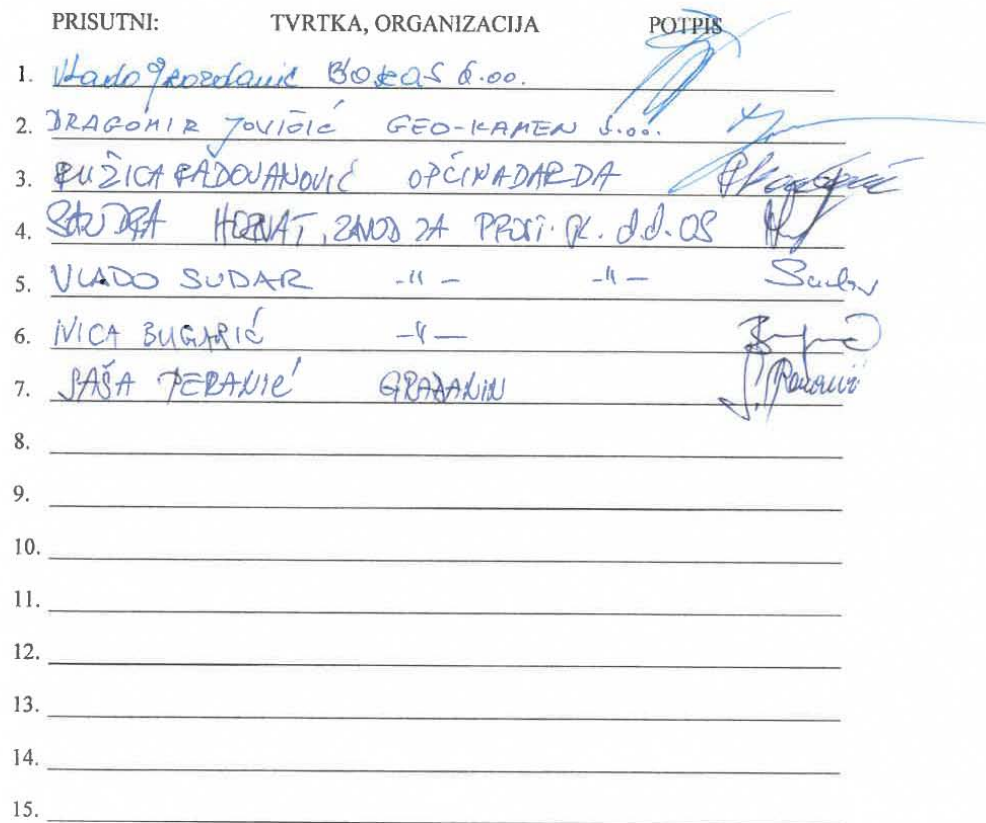 PRISUTNI: TVRTKA, ORGANIZACIJA POTPIS
1. Vlado Grozdanić d.o.o.
2. DRAGOMIR JOVIČIĆ GEO-KAMEN d.o.o.
3. RUŽICA RADOVANOVIĆ OPĆINA DARDA
4. SANDRA HORVAT, ZAVOD ZA PROST. PL. d.d. OS
5. VLADO SUDAR -"- -"- Sudar
6. IVICA BUGARIĆ -"-
7. SAŠA PERANIĆ GRAĐANIN
8.
9.
10.
11.
12.
13.
14.
15.